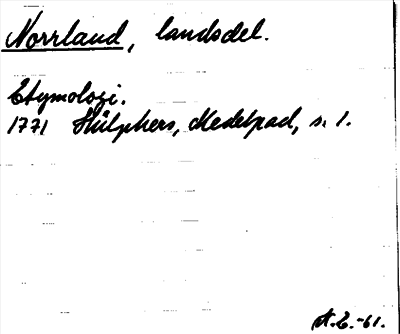 Norrland, landsdel.
Etymologi.
1771 Hülphers, Medelpad, s. 1.
-61.